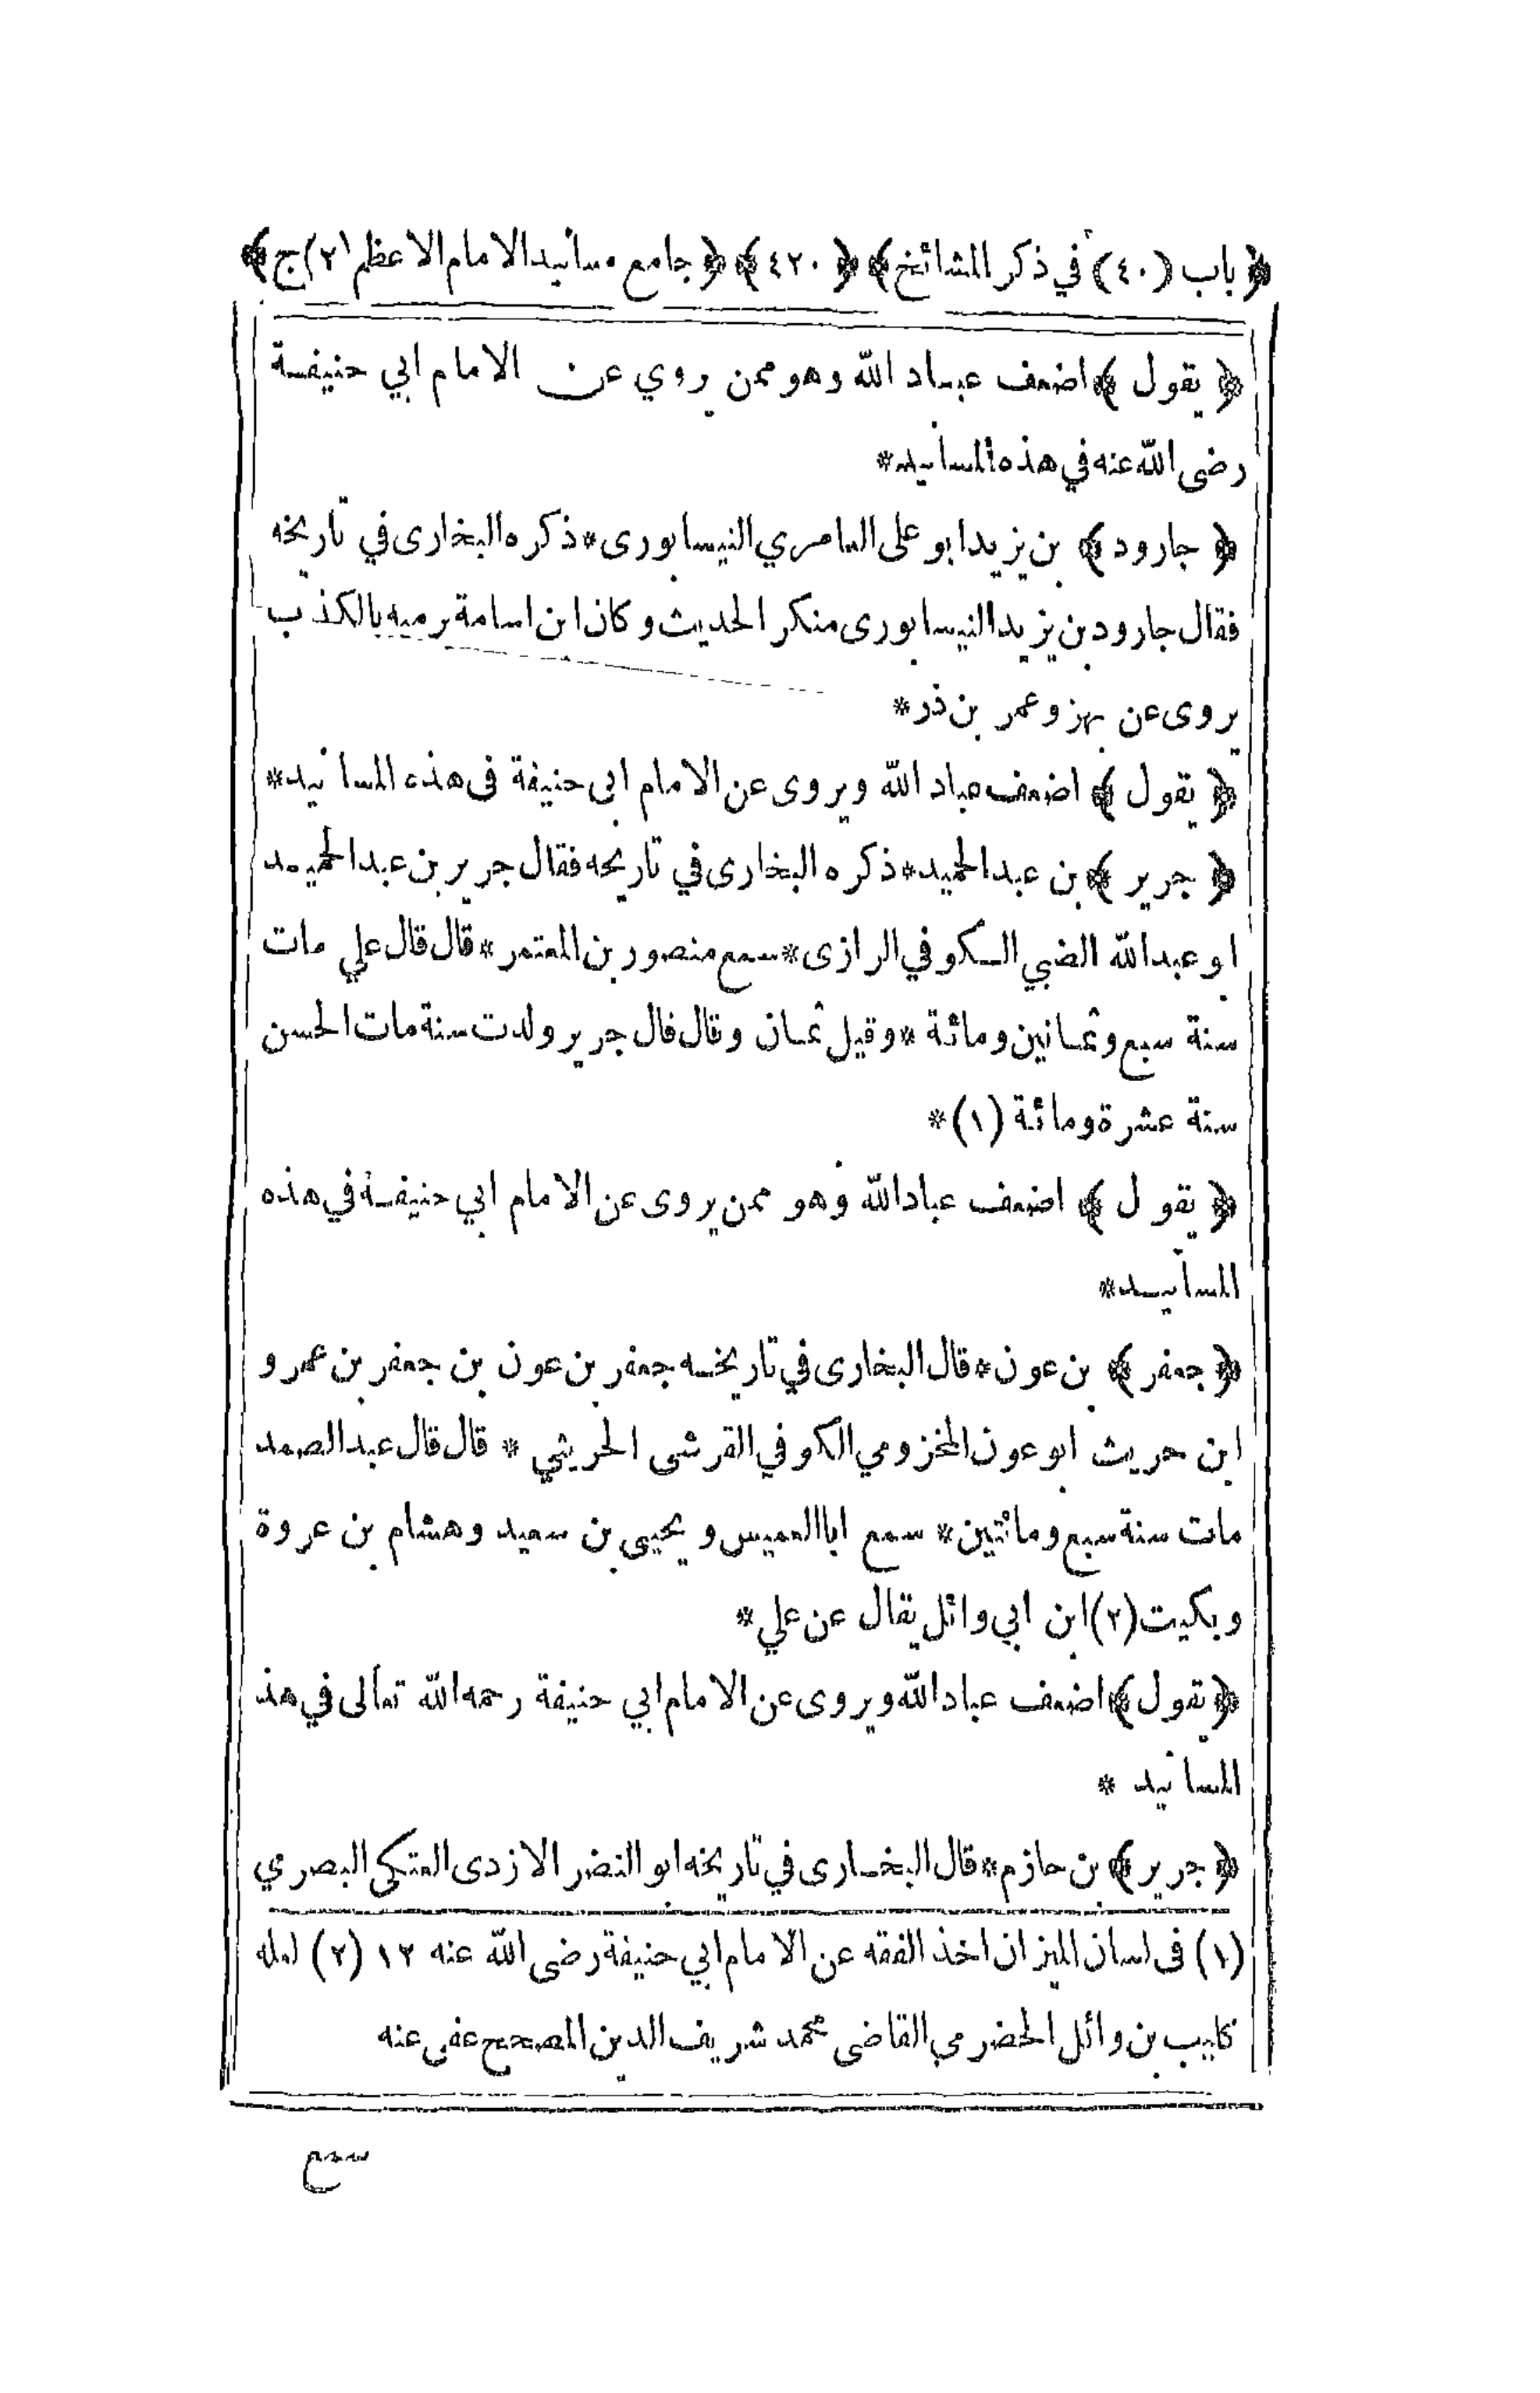 ﴿ باب (٤٠) في ذكر المشائخ ﴾ ﴿ ٤٢٠ ﴾ ﴿ جامع مسانيد الامام الاعظم (٢) ج ﴾
﴿ يقول ﴾ اضعف عباد الله وهو ممن يروي عن الامام ابي حنيفة
رضى الله عنه في هذه المسانيد*
﴿ جارود ﴾ بن يزيد ابو على العامري النيسابورى* ذكره البخارى في تاريخه
فقال جارود بن يزيد النيسابورى منكر الحديث وكان ابن اسامة يرميه بالكذب
يروى عن بهز وعمر بن ذر*
﴿ يقول ﴾ اضعف عباد الله ويروى عن الامام ابى حنيفة فى هذه المسانيد*
﴿ جرير ﴾ بن عبد الحميد* ذكره البخارى في تاريخه فقال جرير بن عبد الحميد
ابو عبد الله الضبي الكوفي الرازى* سمع منصور بن المعتمر* قال قال علي مات
سنة سبع وثمانين ومائة* وقيل ثمان وقال قال جرير ولدت سنة مات الحسن
سنة عشرة ومائة (١)*
﴿ يقول ﴾ اضعف عباد الله وهو ممن يروى عن الامام ابي حنيفة في هذه
المسانيد*
﴿ جعفر ﴾ بن عون* قال البخارى في تاريخه جعفر بن عون بن جعفر بن عمرو
ابن حريث ابو عون المخزومي الكوفي القرشى الحريثي* قال قال عبد الصمد
مات سنة سبع ومائتين* سمع ابا العميس ويحيى بن سعيد وهشام بن عروة
وبكيت (٢) ابن ابي وائل يقال عن علي*
﴿ يقول ﴾ اضعف عباد الله ويروى عن الامام ابي حنيفة رحمه الله تعالى في هذ
المسانيد *
﴿ جرير ﴾ بن حازم* قال البخارى في تاريخه ابو النضر الازدى العتكى البصري
(١) فى لسان الميزان اخذ الفقه عن الامام ابي حنيفة رضى الله عنه ١٢ (٢) لعله
كليب بن وائل الحضرمي القاضى محمد شريف الدين المصحح عفى عنه
سمع